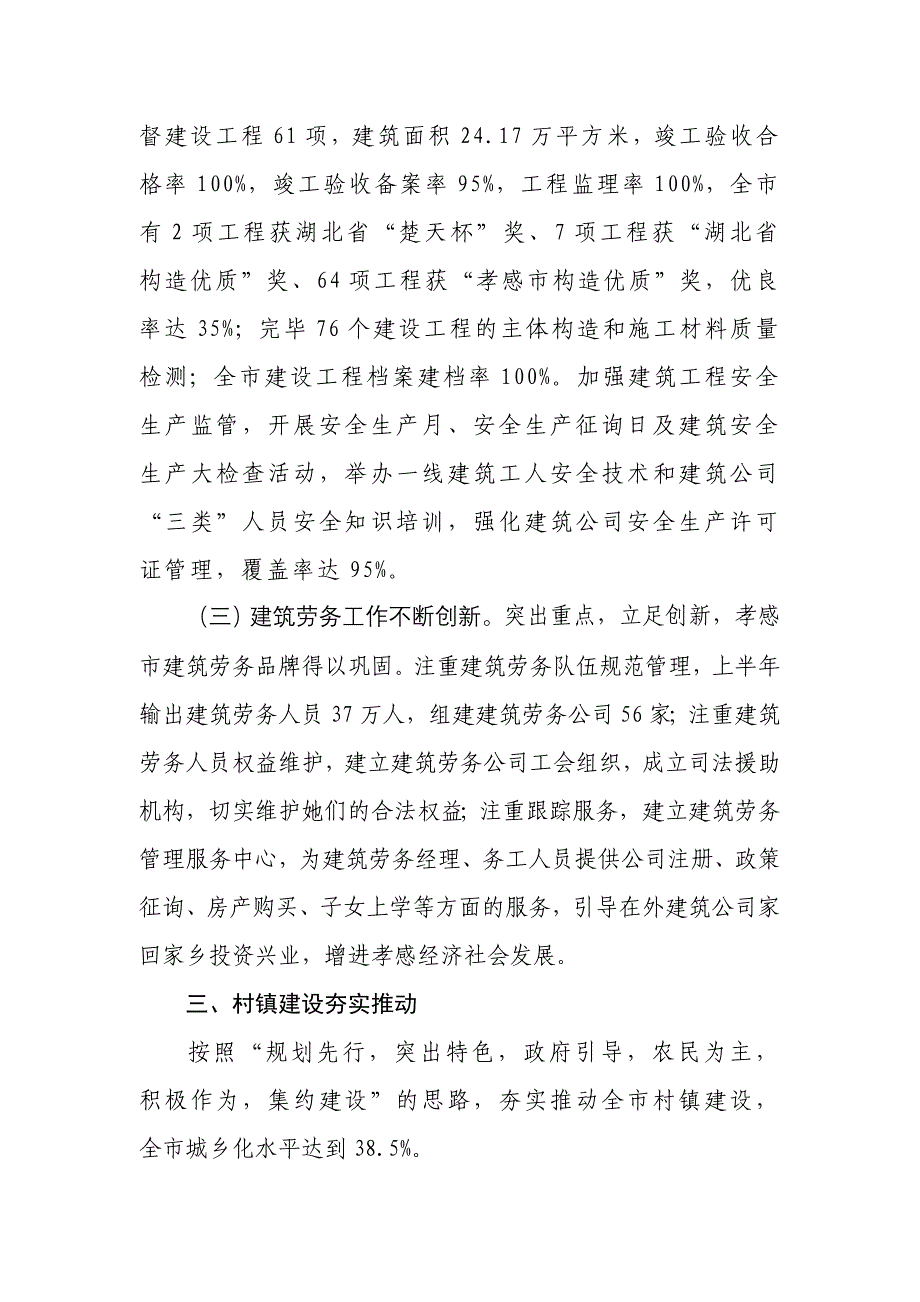 督建设工程 61 项，建筑面积 24.17 万平方米，竣工验收合
格率 100%，竣工验收备案率 95%，工程监理率 100%，全市
有 2 项工程获湖北省“楚天杯”奖、7 项工程获“湖北省
构造优质”奖、64 项工程获“孝感市构造优质”奖，优良
率达 35%；完毕 76 个建设工程的主体构造和施工材料质量
检测；全市建设工程档案建档率 100%。加强建筑工程安全
生产监管，开展安全生产月、安全生产征询日及建筑安全
生产大检查活动，举办一线建筑工人安全技术和建筑公司
“三类”人员安全知识培训，强化建筑公司安全生产许可
证管理，覆盖率达 95%。
（三）建筑劳务工作不断创新。突出重点，立足创新，孝感
市建筑劳务品牌得以巩固。注重建筑劳务队伍规范管理，上半年
输出建筑劳务人员 37 万人，组建建筑劳务公司 56 家；注重建筑
劳务人员权益维护，建立建筑劳务公司工会组织，成立司法援助
机构，切实维护她们的合法权益；注重跟踪服务，建立建筑劳务
管理服务中心，为建筑劳务经理、务工人员提供公司注册、政策
征询、房产购买、子女上学等方面的服务，引导在外建筑公司家
回家乡投资兴业，增进孝感经济社会发展。
三、村镇建设夯实推动
按照“规划先行，突出特色，政府引导，农民为主，
积极作为，集约建设”的思路，夯实推动全市村镇建设，
全市城乡化水平达到 38.5%。